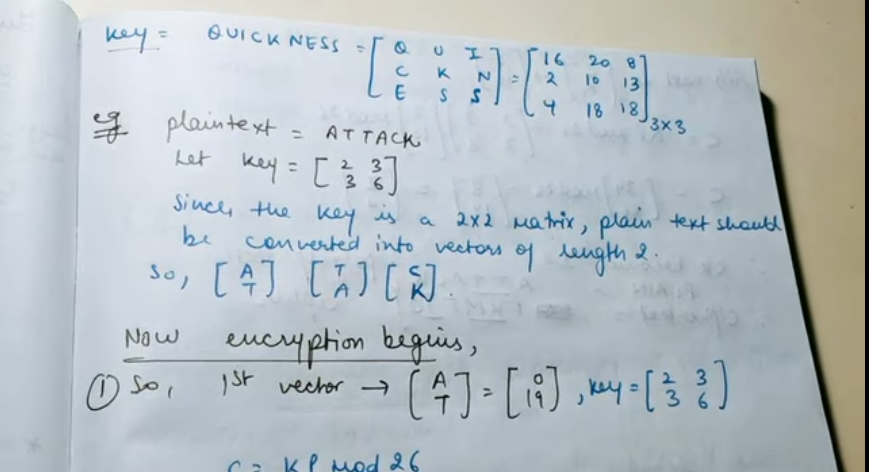 key = QUICKNESS = [Q U I = [16 20 8
C K N 2 10 13
E S S] 4 18 18]3x3
eg plaintext = ATTACK
Let key = [2 3
3 6]
Since, the key is a 2x2 matrix, plain text should
be converted into vectors of length 2.
So, [A T] [T A] [C K].
Now encryption begins,
① So, 1st vector → [A T] = [0 19], key = [2 3
3 6]
C = KP mod 26